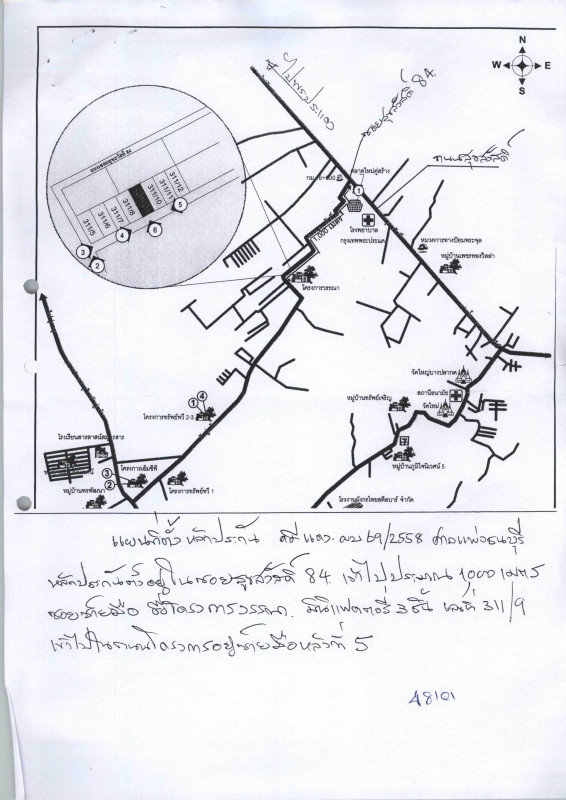 N
W E
S
ไปพระประแดง
ซอยสุขสวัสดิ์ 84
ถนนสุขสวัสดิ์
311/5
311/6
311/7
311/8
311/10
311/11
311/12
3
2
4
6
5
ตลาดใหม่คู่สร้าง
1
โรงพยาบาล
กรุงเทพพระประแดง
1,000 เมตร
หมวดการทางป้อมพระจุล
หมู่บ้านเพชรทองวิลล่า
โครงการวรรณา
วัดใหญ่บางปลากด
สถานีอนามัย
วัดใหม่
หมู่บ้านทรัพย์เจริญ
7
หมู่บ้านภูมิใจนิเวศน์ 5
1 4
โครงการทรัพย์ทวี 2-3
โครงการเอ็มซีพี
3
2
โครงการทรัพย์ทวี 1
หมู่บ้านพรพัฒนา
แผนที่ตั้ง หลักประกัน คดี แดง ผบ 69/2558 ศาลแพ่งธนบุรี
หลักประกันตั้งอยู่ในซอยสุขสวัสดิ์ 84 เข้าไปประมาณ 1,000 เมตร
ซอยซ้ายมือ ชื่อโครงการวรรณา. มินิแฟคตอรี่ 3 ชั้น เลขที่ 311/9
เข้าไปในถนนโครงการอยู่ซ้ายมือหลังที่ 5
48101